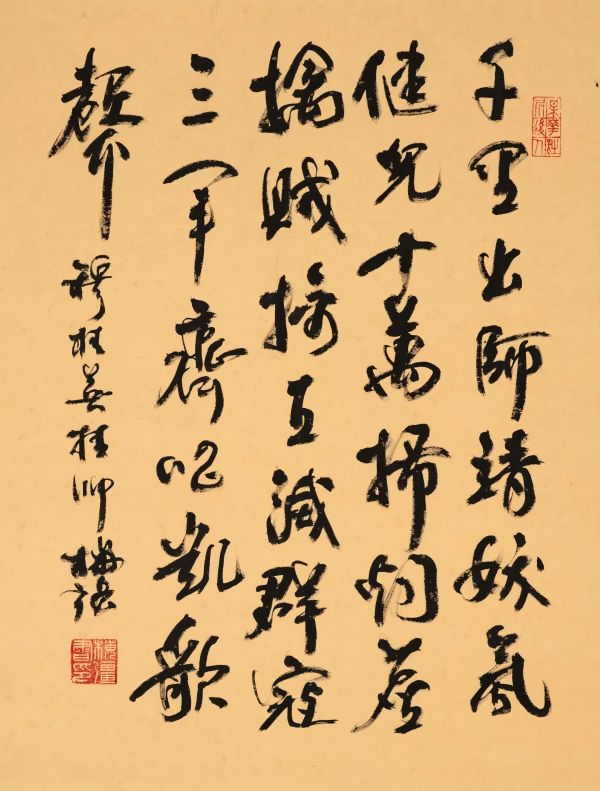 千里出師靖妖氛
健兒十萬掃烟塵
擒賊擒王滅群寇
三軍齊唱凱歌
聲 穆桂英挂帥